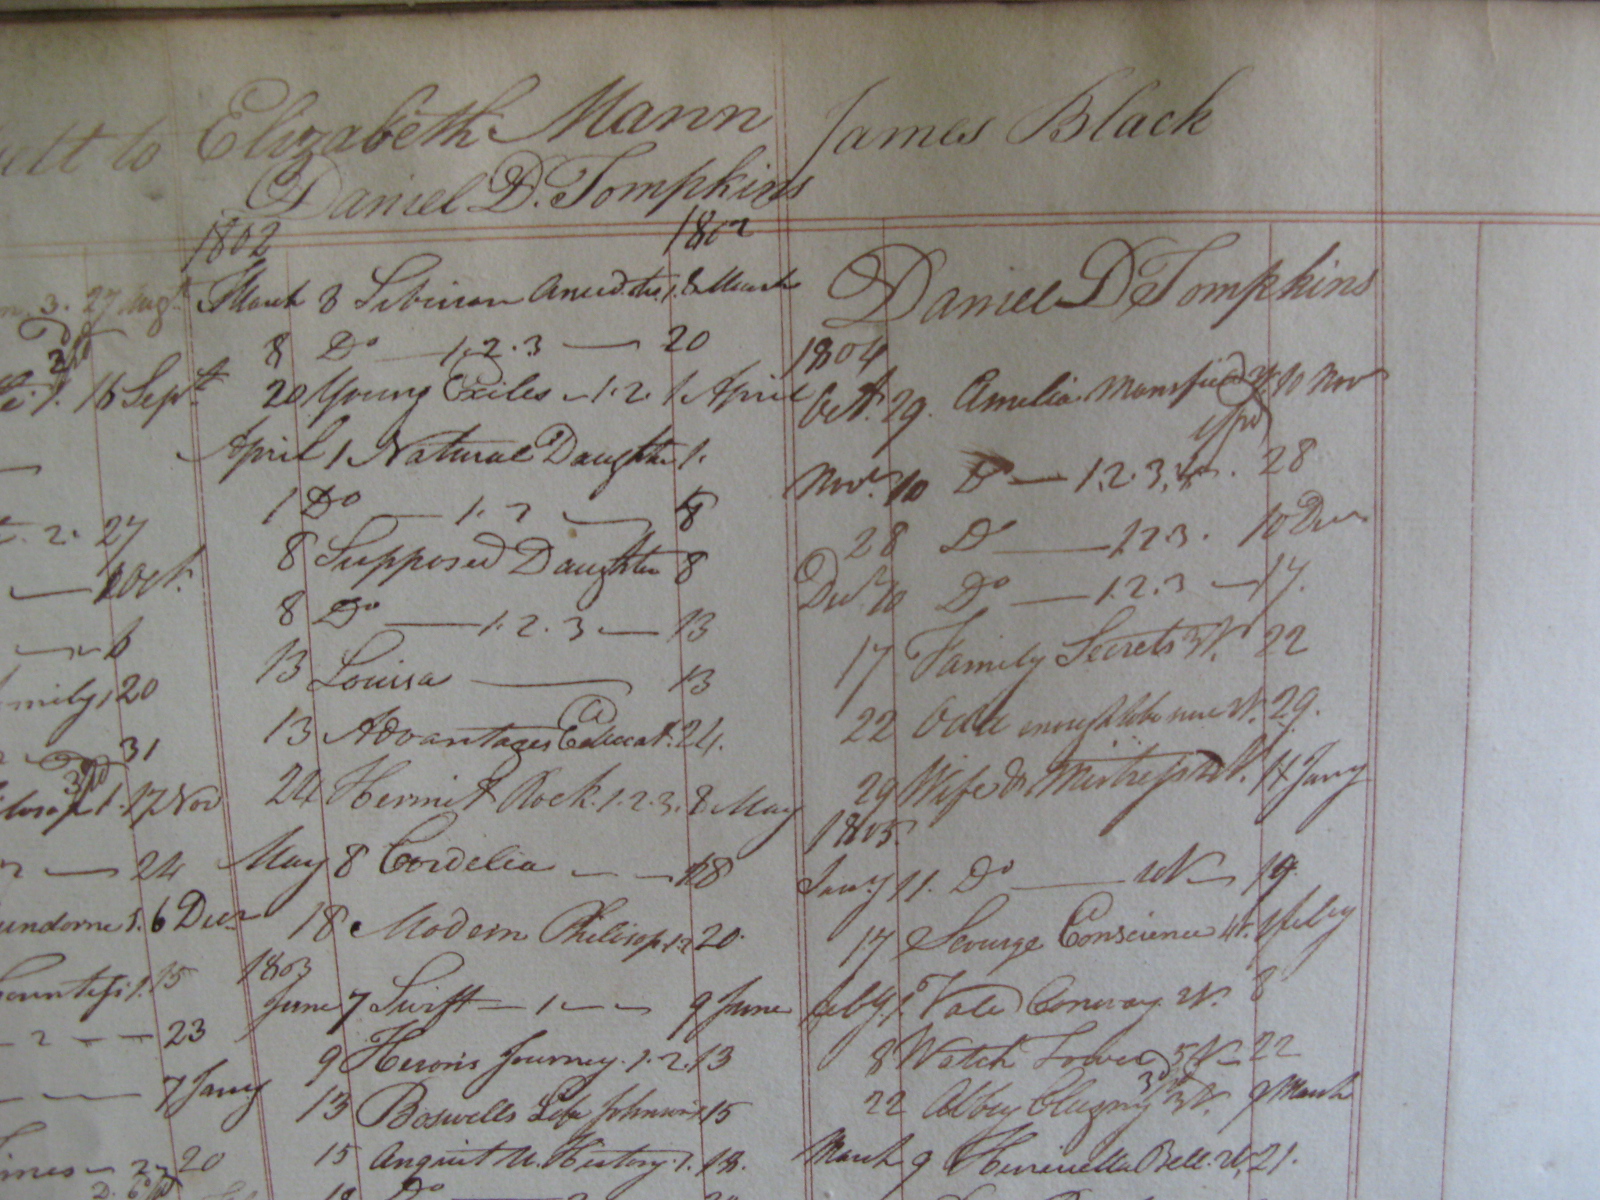 to Elizabeth Mann James Black
Daniel D. Tompkins
1802 1802
March 8 Siberian Anecdotes 1. 8 March
8 Do 1.2.3 20
20 Young Exiles 1.2. 1 April
April 1 Natural Daughter 1.
1 Do 1.2 8
8 Supposed Daughter 8
8 Do 1.2.3 13
13 Louisa 13
13 Advantages Educat. 24.
24 Hermit Rock. 1.2.3. 8 May
May 8 Cordelia 18
18 Modern Philosop. 1.2 20.
1803
June 7 Swift 1 9 June
9 Herons Journey. 1.2. 13
13 Boswells Life Johnson 1 15
15 Anquit U. History. 1. 18.
Do
Daniel D Tompkins
1804
Oct. 29. Amelia Mansfield 10 Nov
Nov. 10 Do 1.2.3. 28
28 Do 1.2.3. 10 Decr
Decr 10 Do 1.2.3 17.
17 Family Secrets 22
22 Odd enough to be sure 29.
29 Wife & Mistress 11 Jany
1805
Jany 11. Do 17
17 Scourge Conscience 4v. 1 feby
feby 1 Vale Conway 8
8 Watch Tower 5v 22
22 Abbey Clugny 9 March
March 9 Henrietta Bell. 21.
3. 27 Augt
16 Sept
2. 27
1 Oct.
6
family 1 20
31
17 Nov
24
5. 6 Decr
1. 15
2 23
7 Jany
20